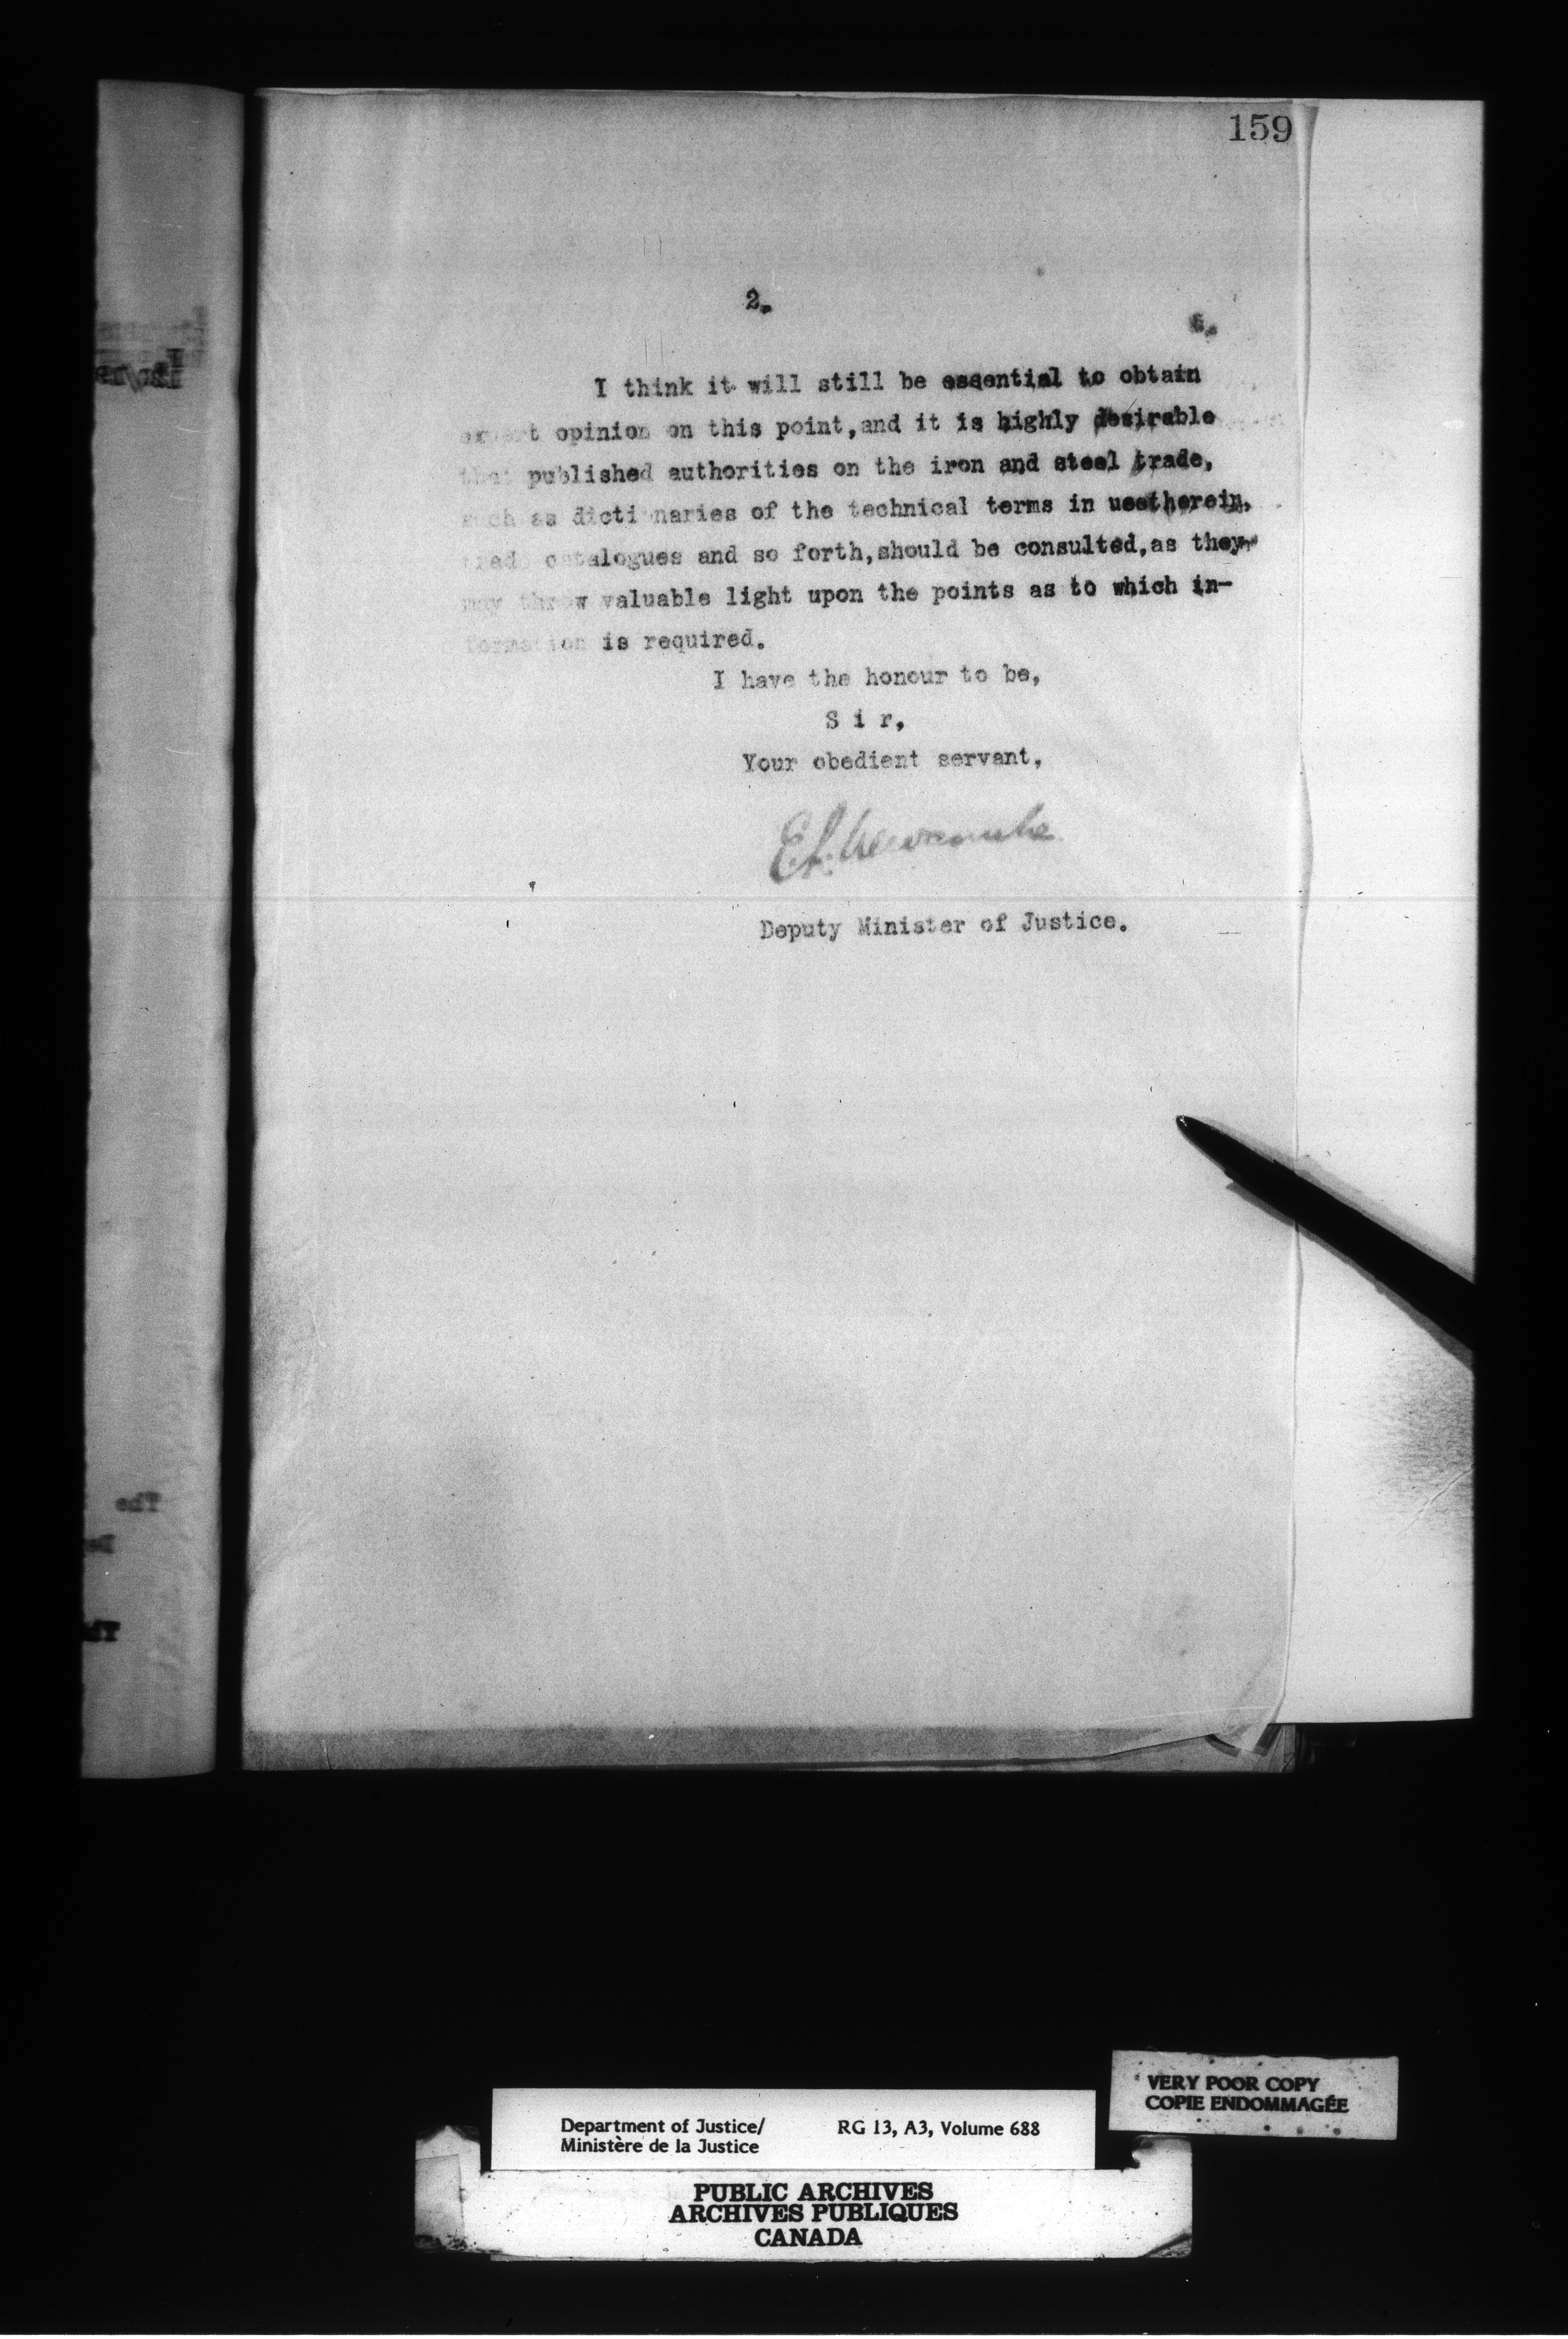 159
2.
I think it will still be essential to obtain
expert opinion on this point, and it is highly desirable
that published authorities on the iron and steel trade,
such as dictionaries of the technical terms in use therein,
trade catalogues and so forth, should be consulted, as they
may throw valuable light upon the points as to which in-
formation is required.
I have the honour to be,
S i r,
Your obedient servant,
E.L. Newcombe
Deputy Minister of Justice.
The
VERY POOR COPY
COPIE ENDOMMAGÉE
Department of Justice/ RG 13, A3, Volume 688
Ministère de la Justice
PUBLIC ARCHIVES
ARCHIVES PUBLIQUES
CANADA